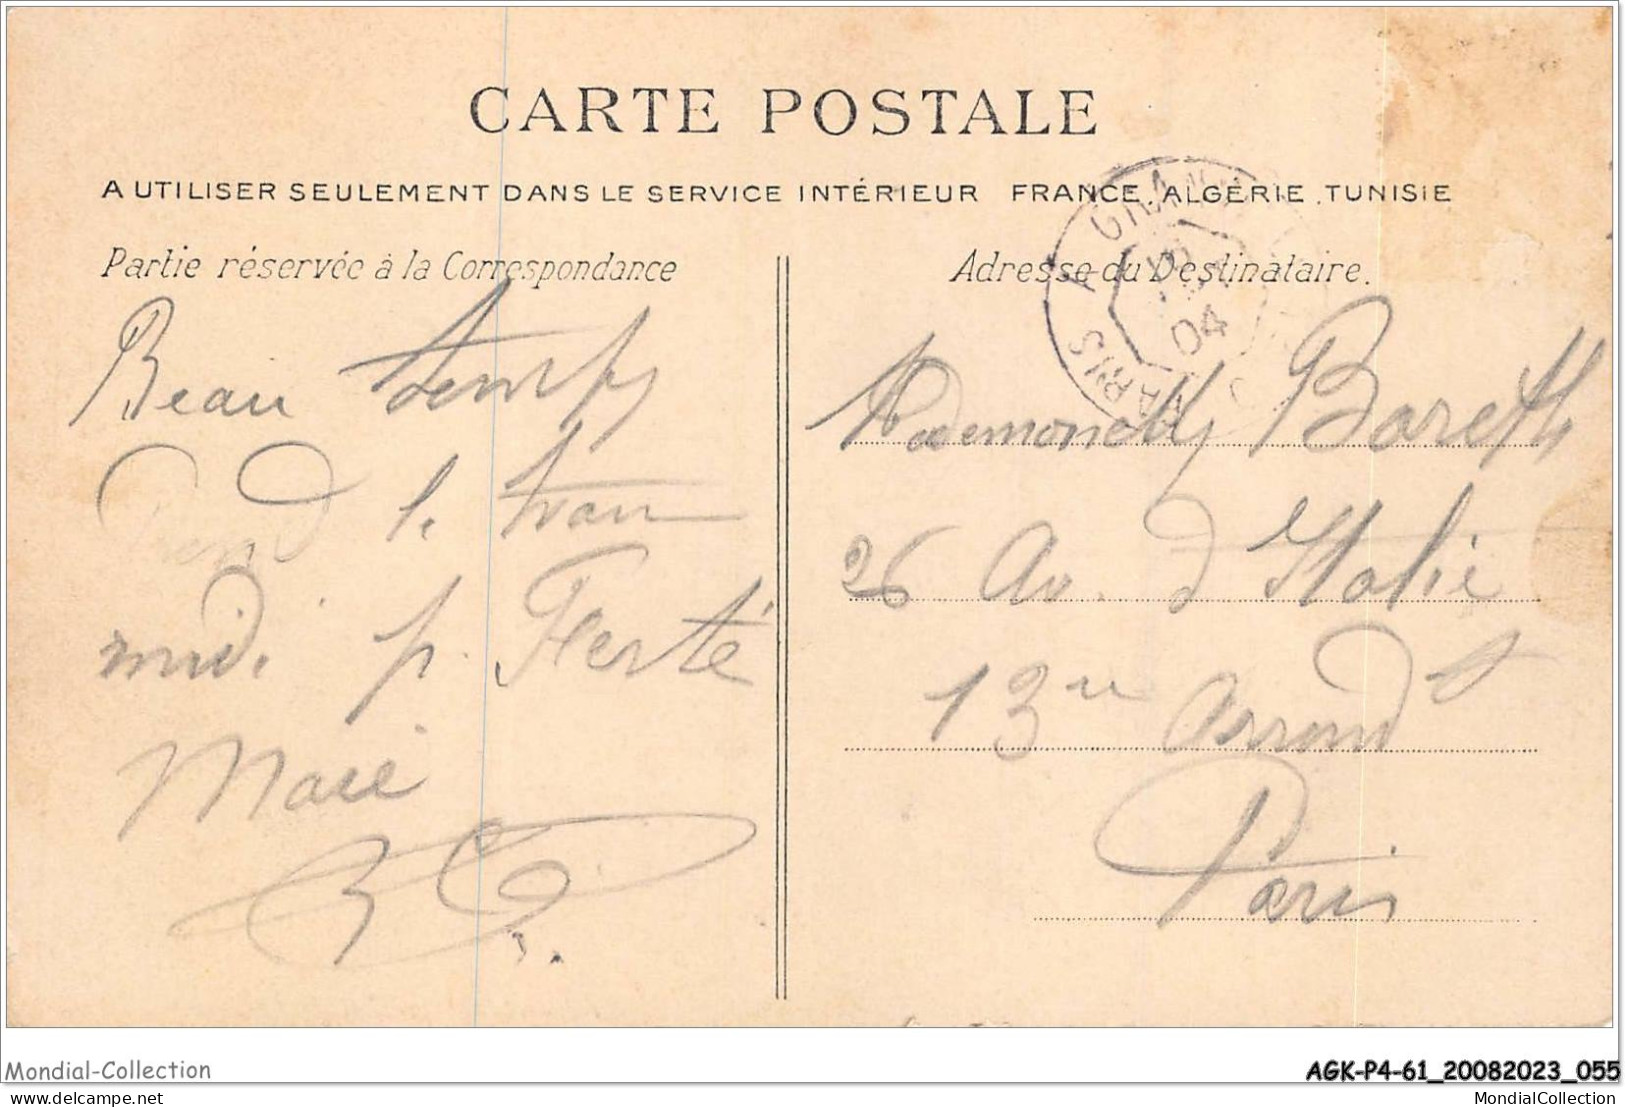 CARTE POSTALE
A UTILISER SEULEMENT DANS LE SERVICE INTÉRIEUR FRANCE. ALGÉRIE. TUNISIE
Partie réservée à la Correspondance
Beau temps
Prend le train
midi p. Ferté
Macé
Adresse du Destinataire.
PARIS A GRANV
04
Mademoiselle Bareth
26 Av. d Italie
13me Arrond t
Paris
Mondial-Collection
AGK-P4-61_20082023_055
delcampe.net
MondialCollection